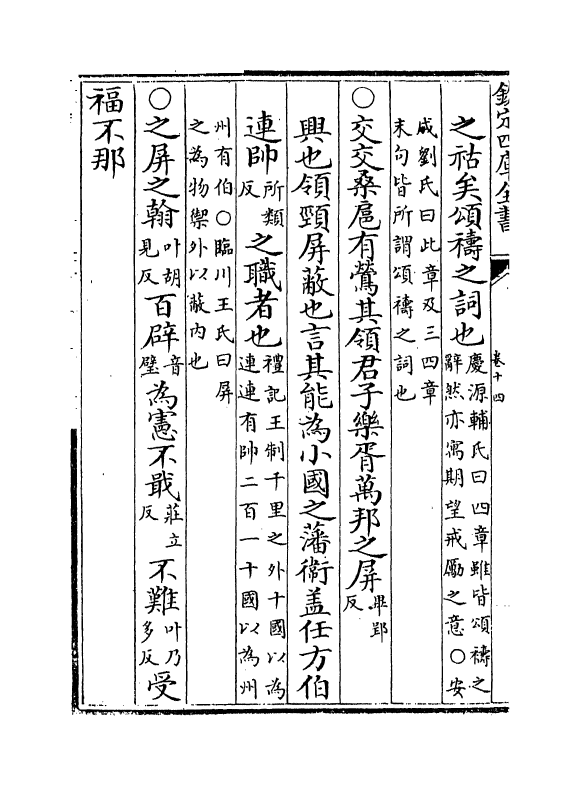 欽定四庫全書
卷十四
之祜矣頌禱之詞也慶源輔氏曰四章雖皆頌禱之辭然亦寓期望戒勵之意○安
成劉氏曰此章及三四章末句皆所謂頌禱之詞也
○交交桑扈有鶯其領君子樂胥萬邦之屏卑郢反
興也領頸屏蔽也言其能為小國之藩衛盖任方伯
連帥所類反之職者也禮記王制千里之外十國以為連連有帥二百一十國以為州
州有伯○臨川王氏曰屏之為物禦外以蔽内也
○之屏之翰叶胡見反百辟音璧為憲不戢莊立反不難叶乃多反受
福不那